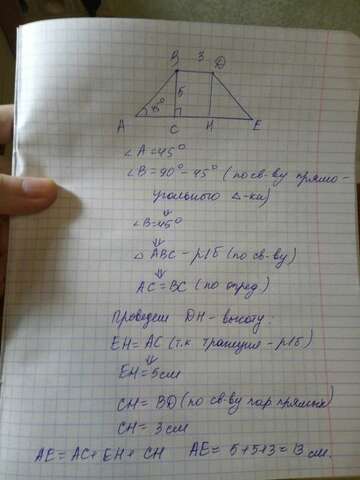 B 3 D
5
45°
A C H E
∠A=45°
∠B=90°-45° (по св-ву прямо-
угольного △-ка)
⇓
∠B=45°
⇓
△ABC - р/б (по св-ву)
⇓
AC = BC (по опред)
Проведем DH - высоту:
EH = AC (т.к трапеция - р/б)
⇓
EH = 5 см
CH = BD (по св-ву пар прямых)
CH = 3 см
AE = AC + EH + CH AE = 5+5+3 = 13 см.